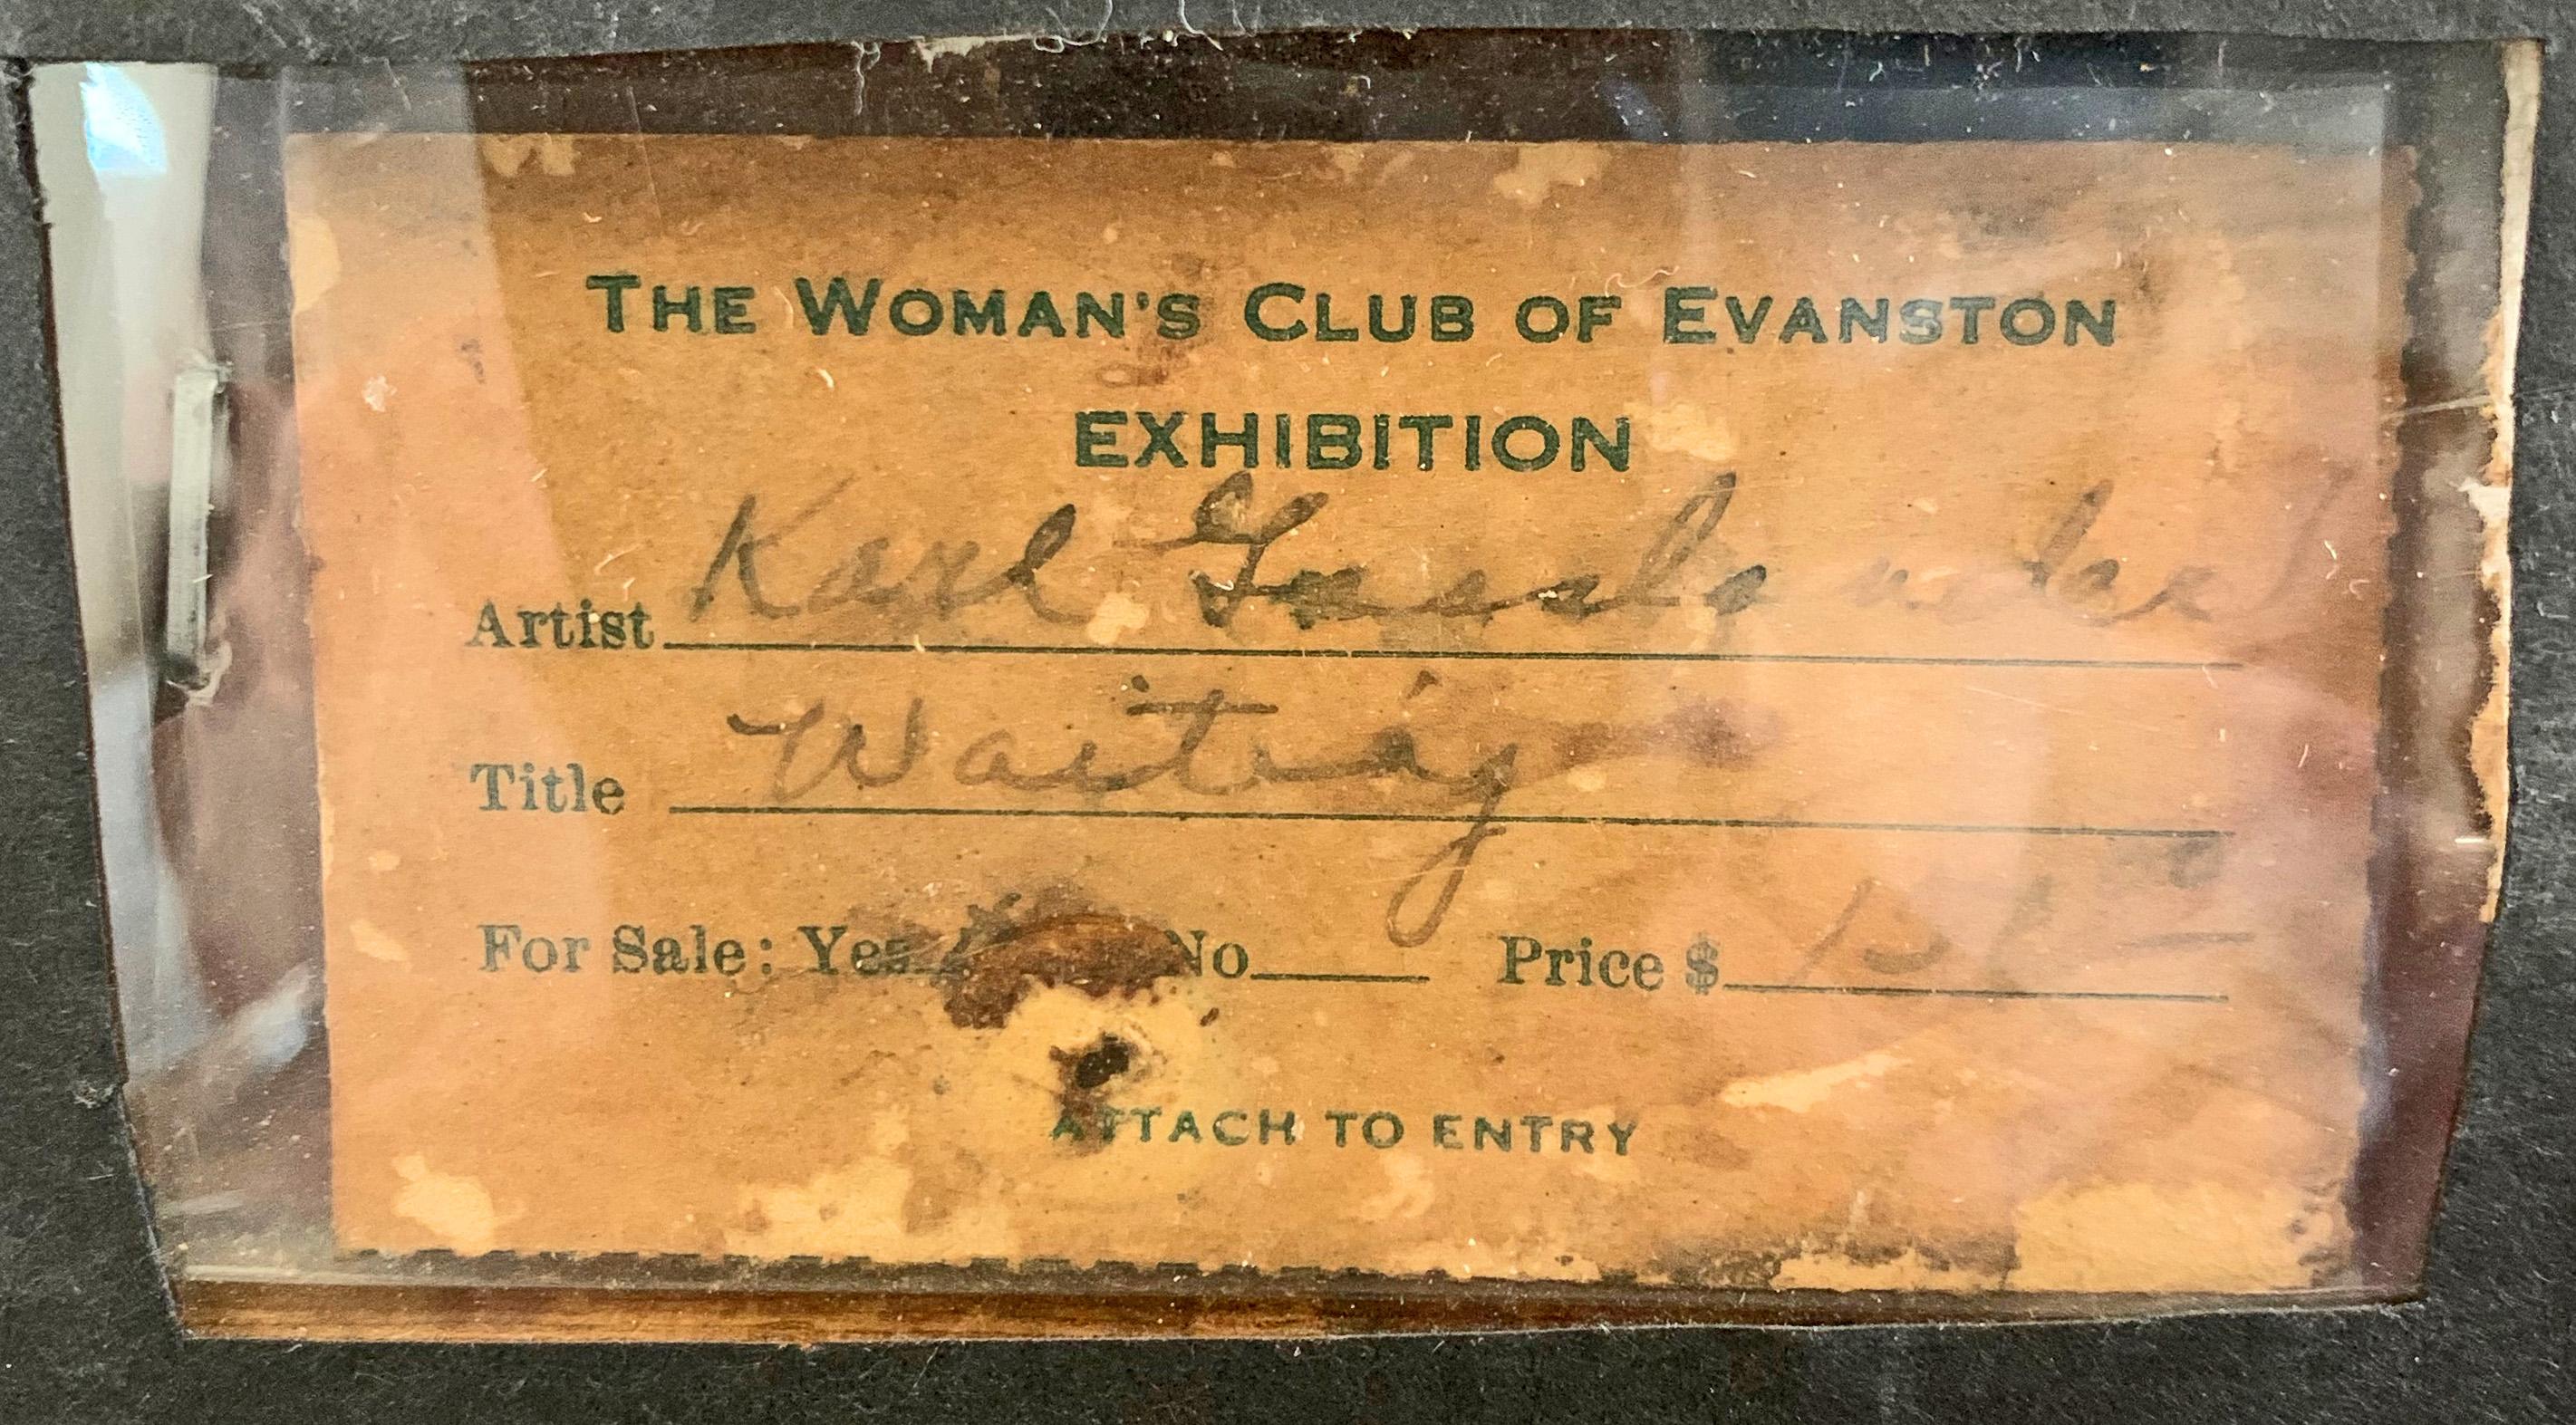 THE WOMAN'S CLUB OF EVANSTON
EXHIBITION
Artist Karl
Title Waiting
For Sale: Yes No Price $
ATTACH TO ENTRY